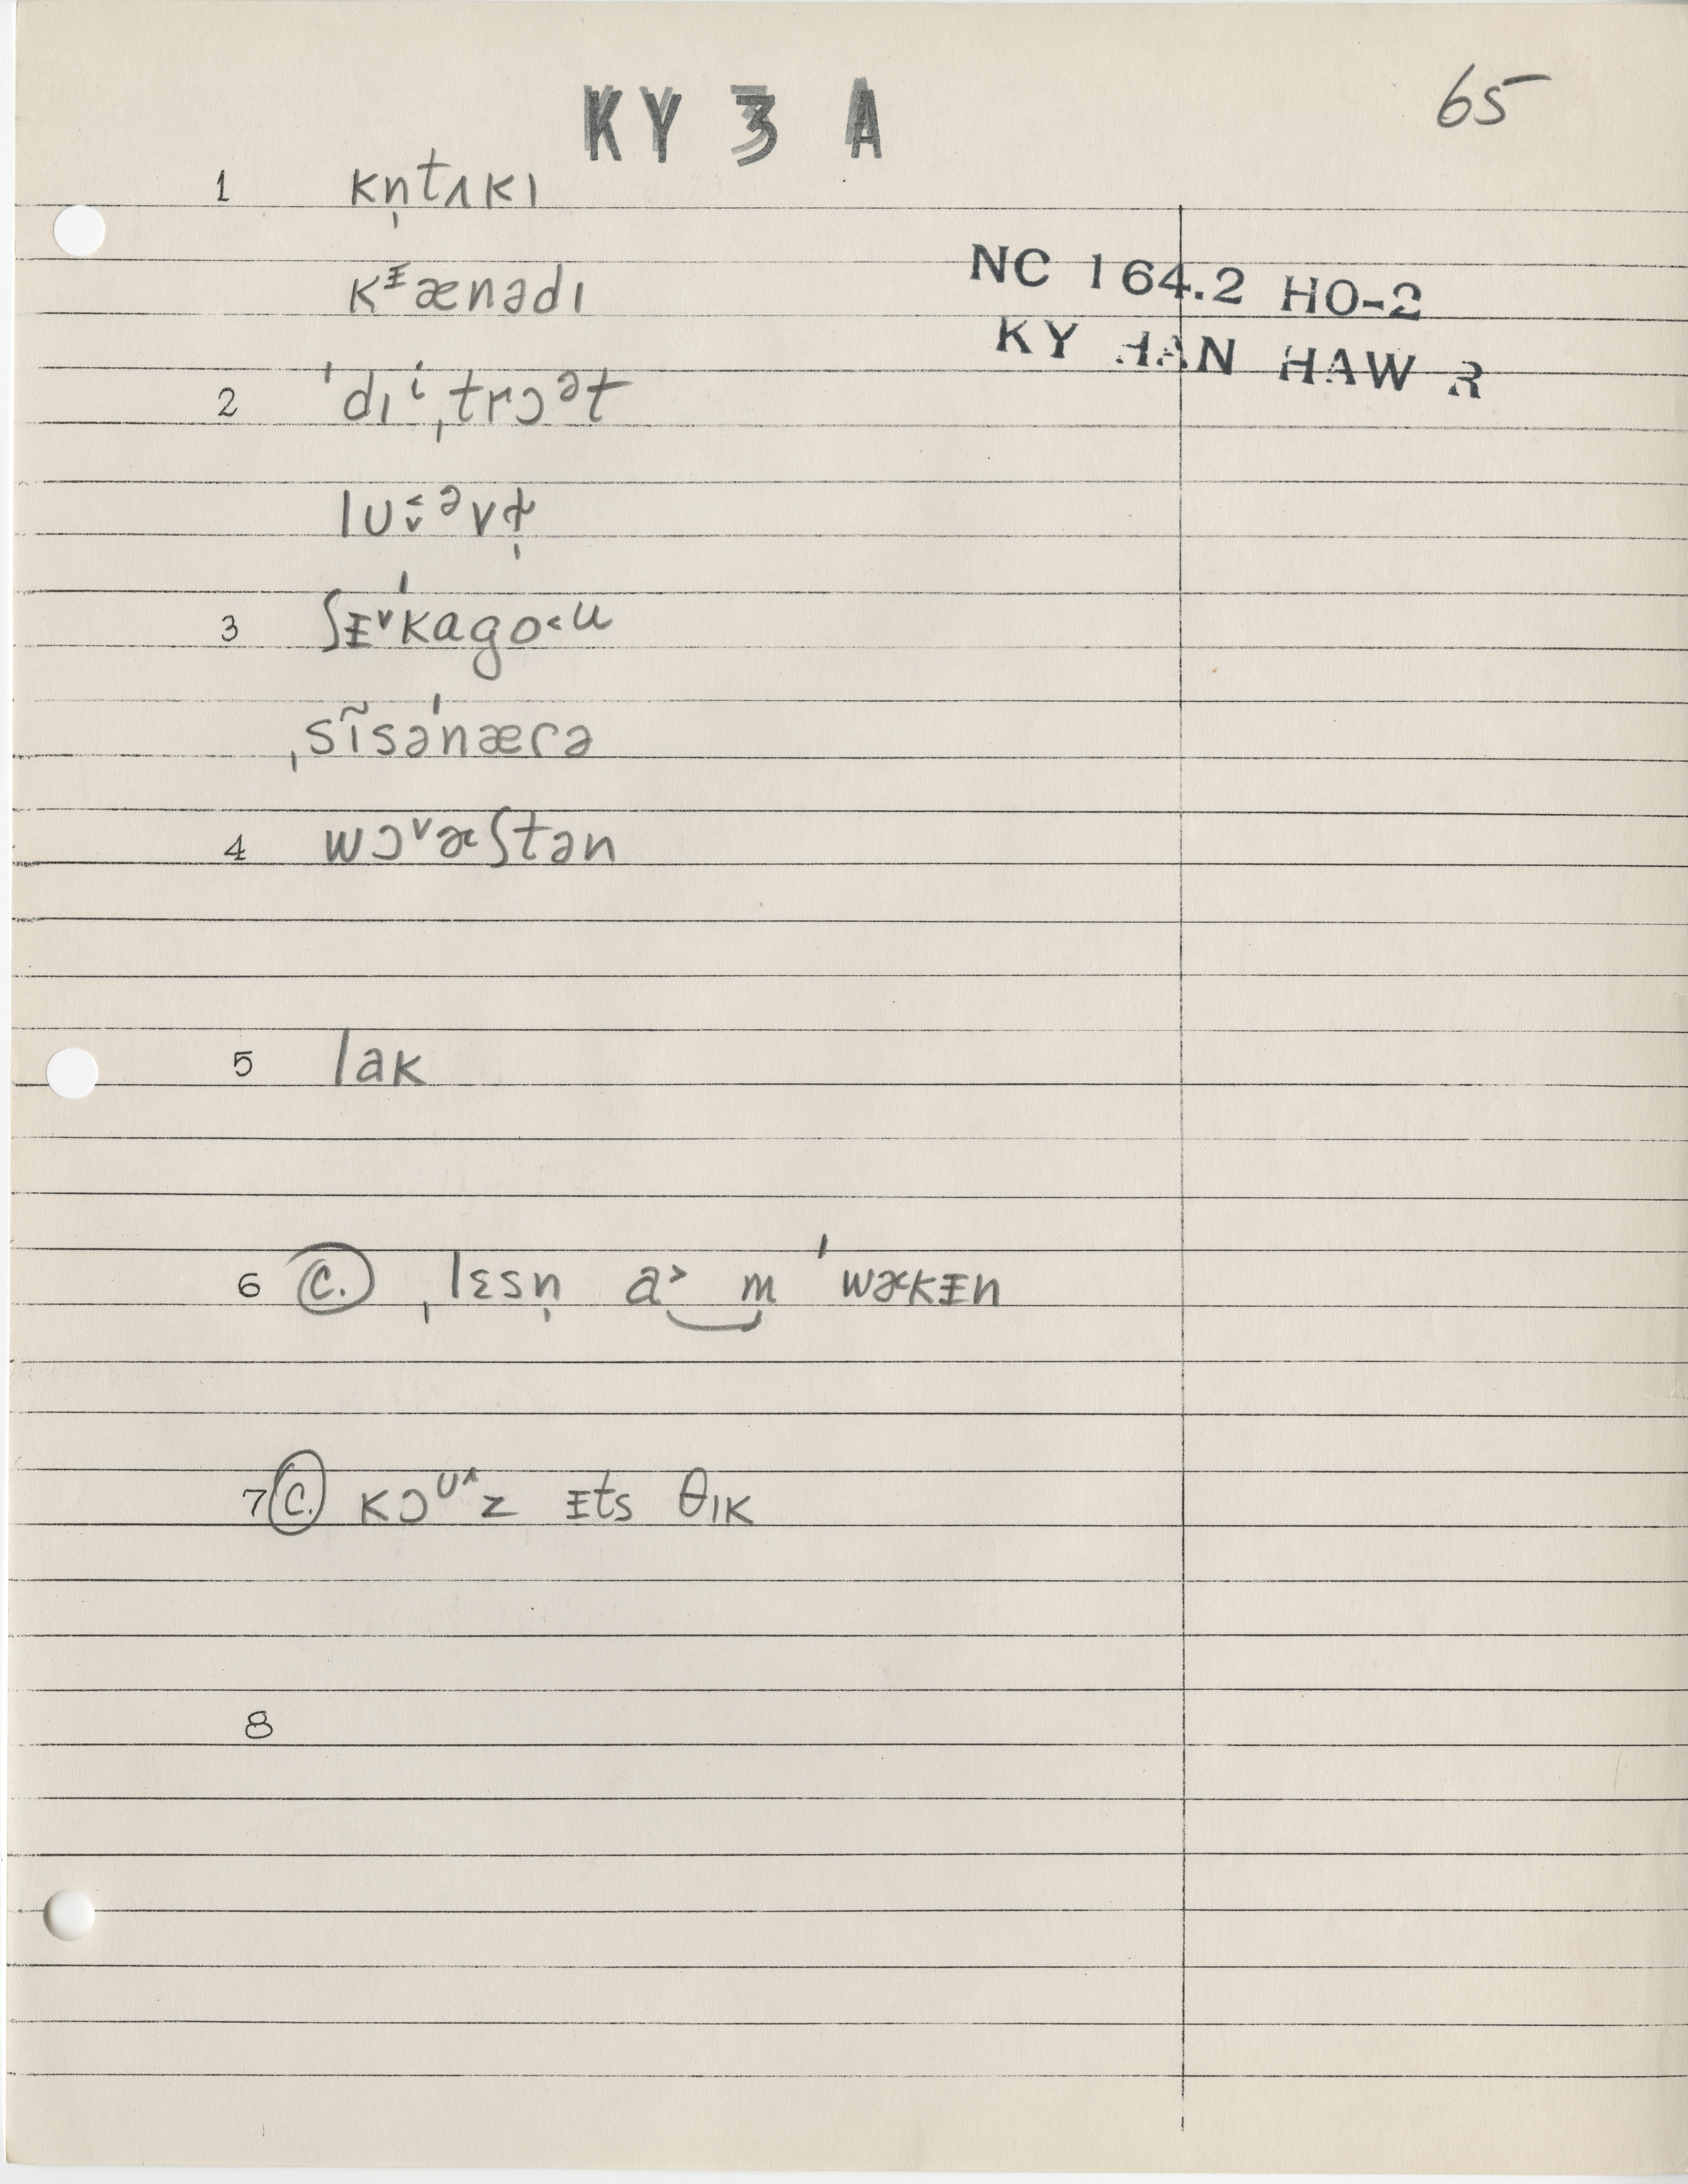 KY 3 A
65
1 kn̩tʌkɪ
kᵻænədɪ
NC 164.2 HO-2
KY HAN HAW R
2 ˈdɪⁱˌtrɔᵊt
3 ʃᵻ˅ˈkago˂u
ˌsɪ̃səˈnærə
4 wɔ˅ɚʃtən
5 lak
6 C. ˌlɛsn̩ a˃‿m ˈwɚkᵻn
7 C. kɔᶷ˄z ᵻts θɪk
8